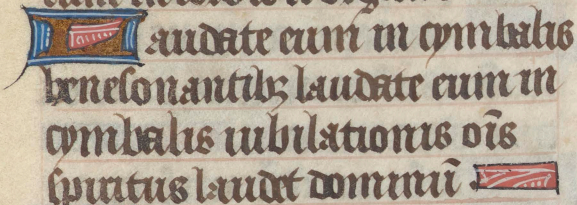 Laudate eum in cymbalis
benesonantibꝫ laudate eum in
cymbalis iubilationis oīs
spiritus laudet dominū